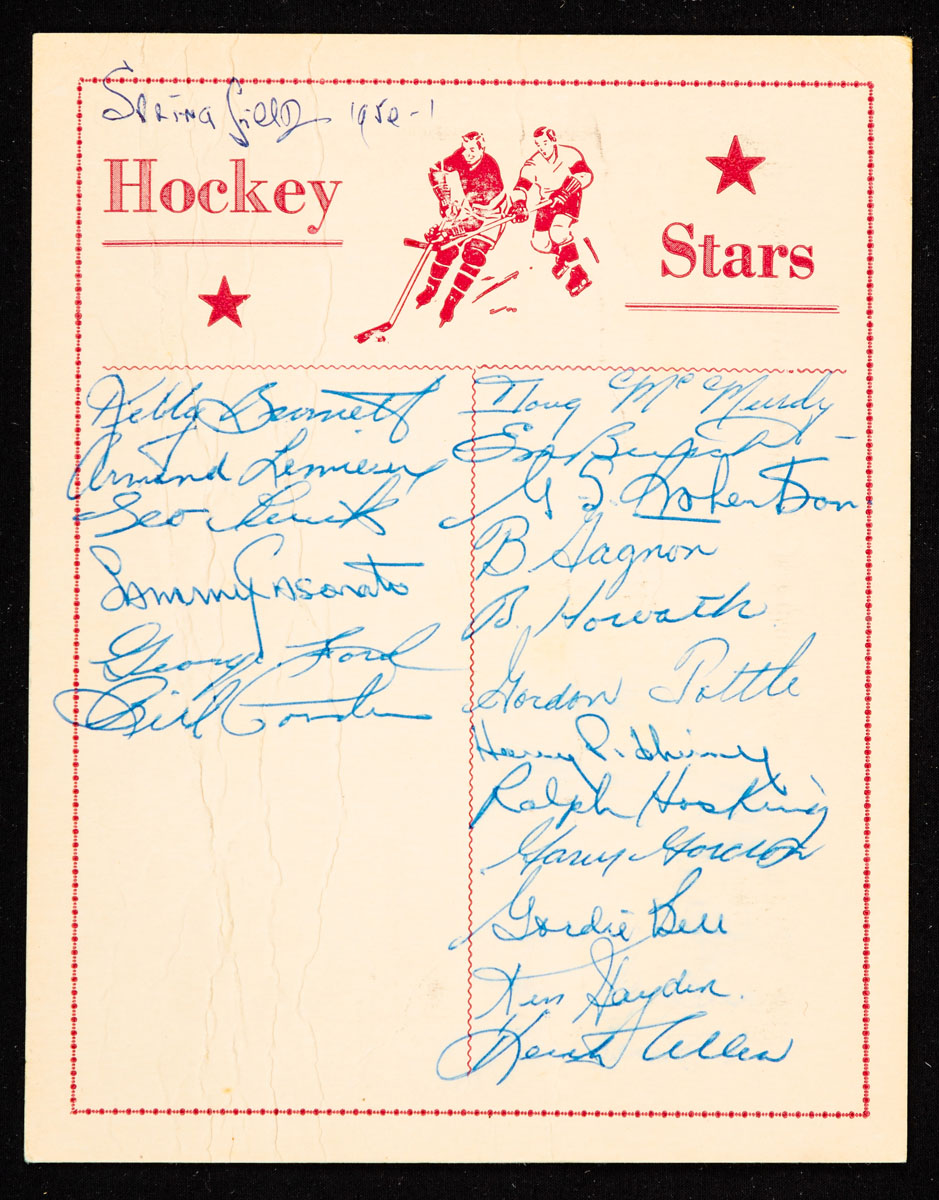 Springfield 1950-1
Hockey
Stars
Kelly Burnett
Armand Lemieux
Geo
Sammy Casanato
George Ford
Bill
Doug McMurdy
G S Robertson
B Gagnon
B. Horvath
Gordon Tottle
Harry Pidhirny
Ralph Hosking
Harry Gordon
Gordie Bell
Ken Hayden
Keith Allen